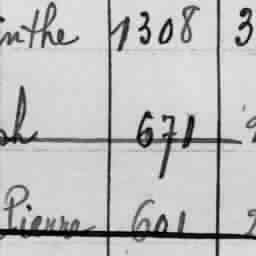 inthe 1308 3
sh 671
Pierre 601 2